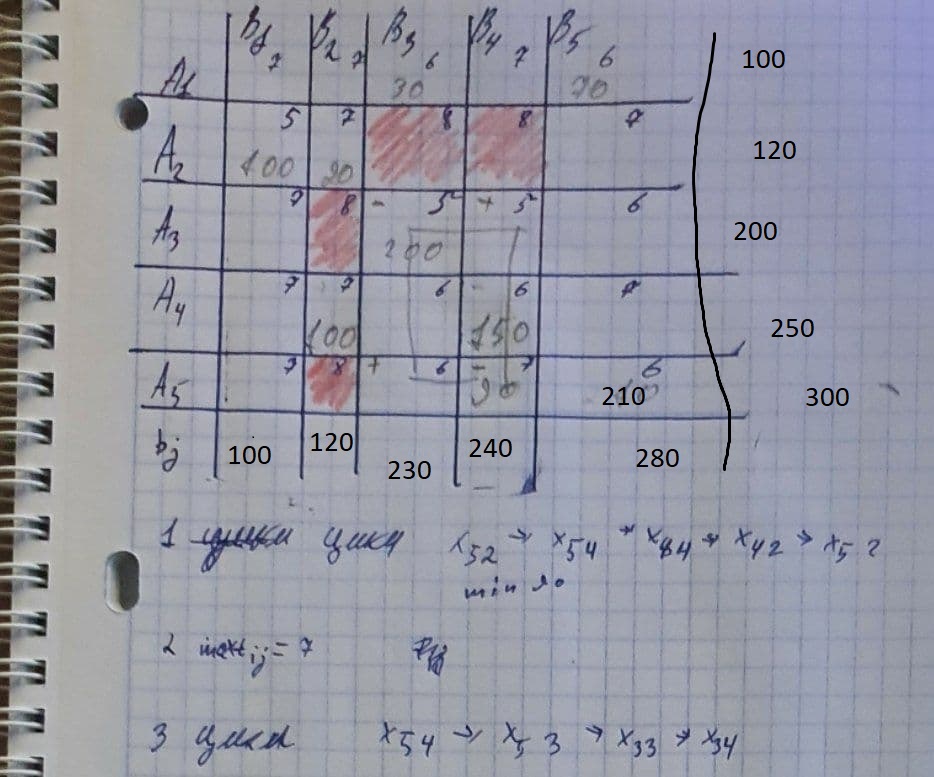 B1 B2 B3 B4 B5
A1 7 7 6 30 7 6 70 100
A2 5 100 7 20 8 8 7 120
A3 7 8 - 5 200 + 5 6 200
A4 7 7 100 6 - 6 150 7 250
A5 7 8 + 6 - 7 90 6 210 300
bj 100 120 230 240 280
1 цикл x52 → x54 → x44 → x42 → x52
min
2 max tij = 7
3 цикл x54 → x53 → x33 → x34